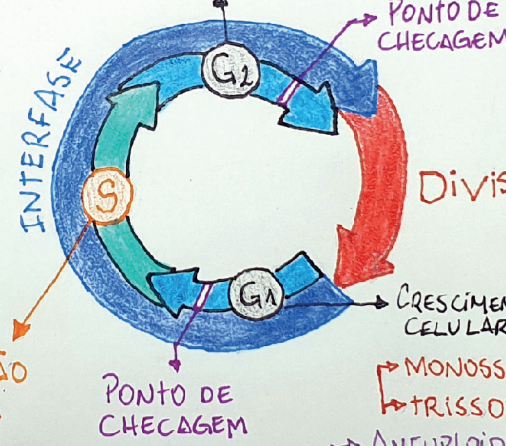 PONTO DE
CHECAGEM
INTERFASE
G2
S
DIVIS
G1
CRESCIMEN
CELULAR
ÃO
PONTO DE
CHECAGEM
MONOSS
TRISSO
ANEUPLOID